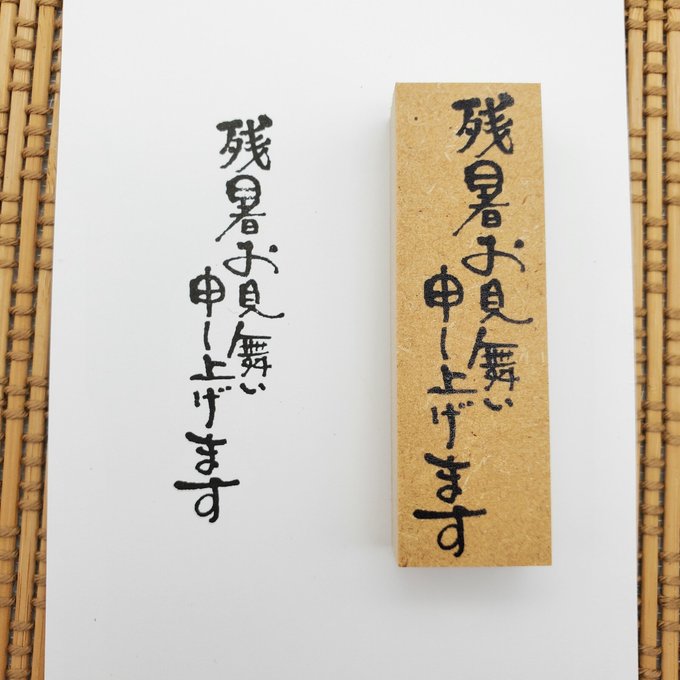 残暑お見舞い
申し上げます
残暑お見舞い
申し上げます